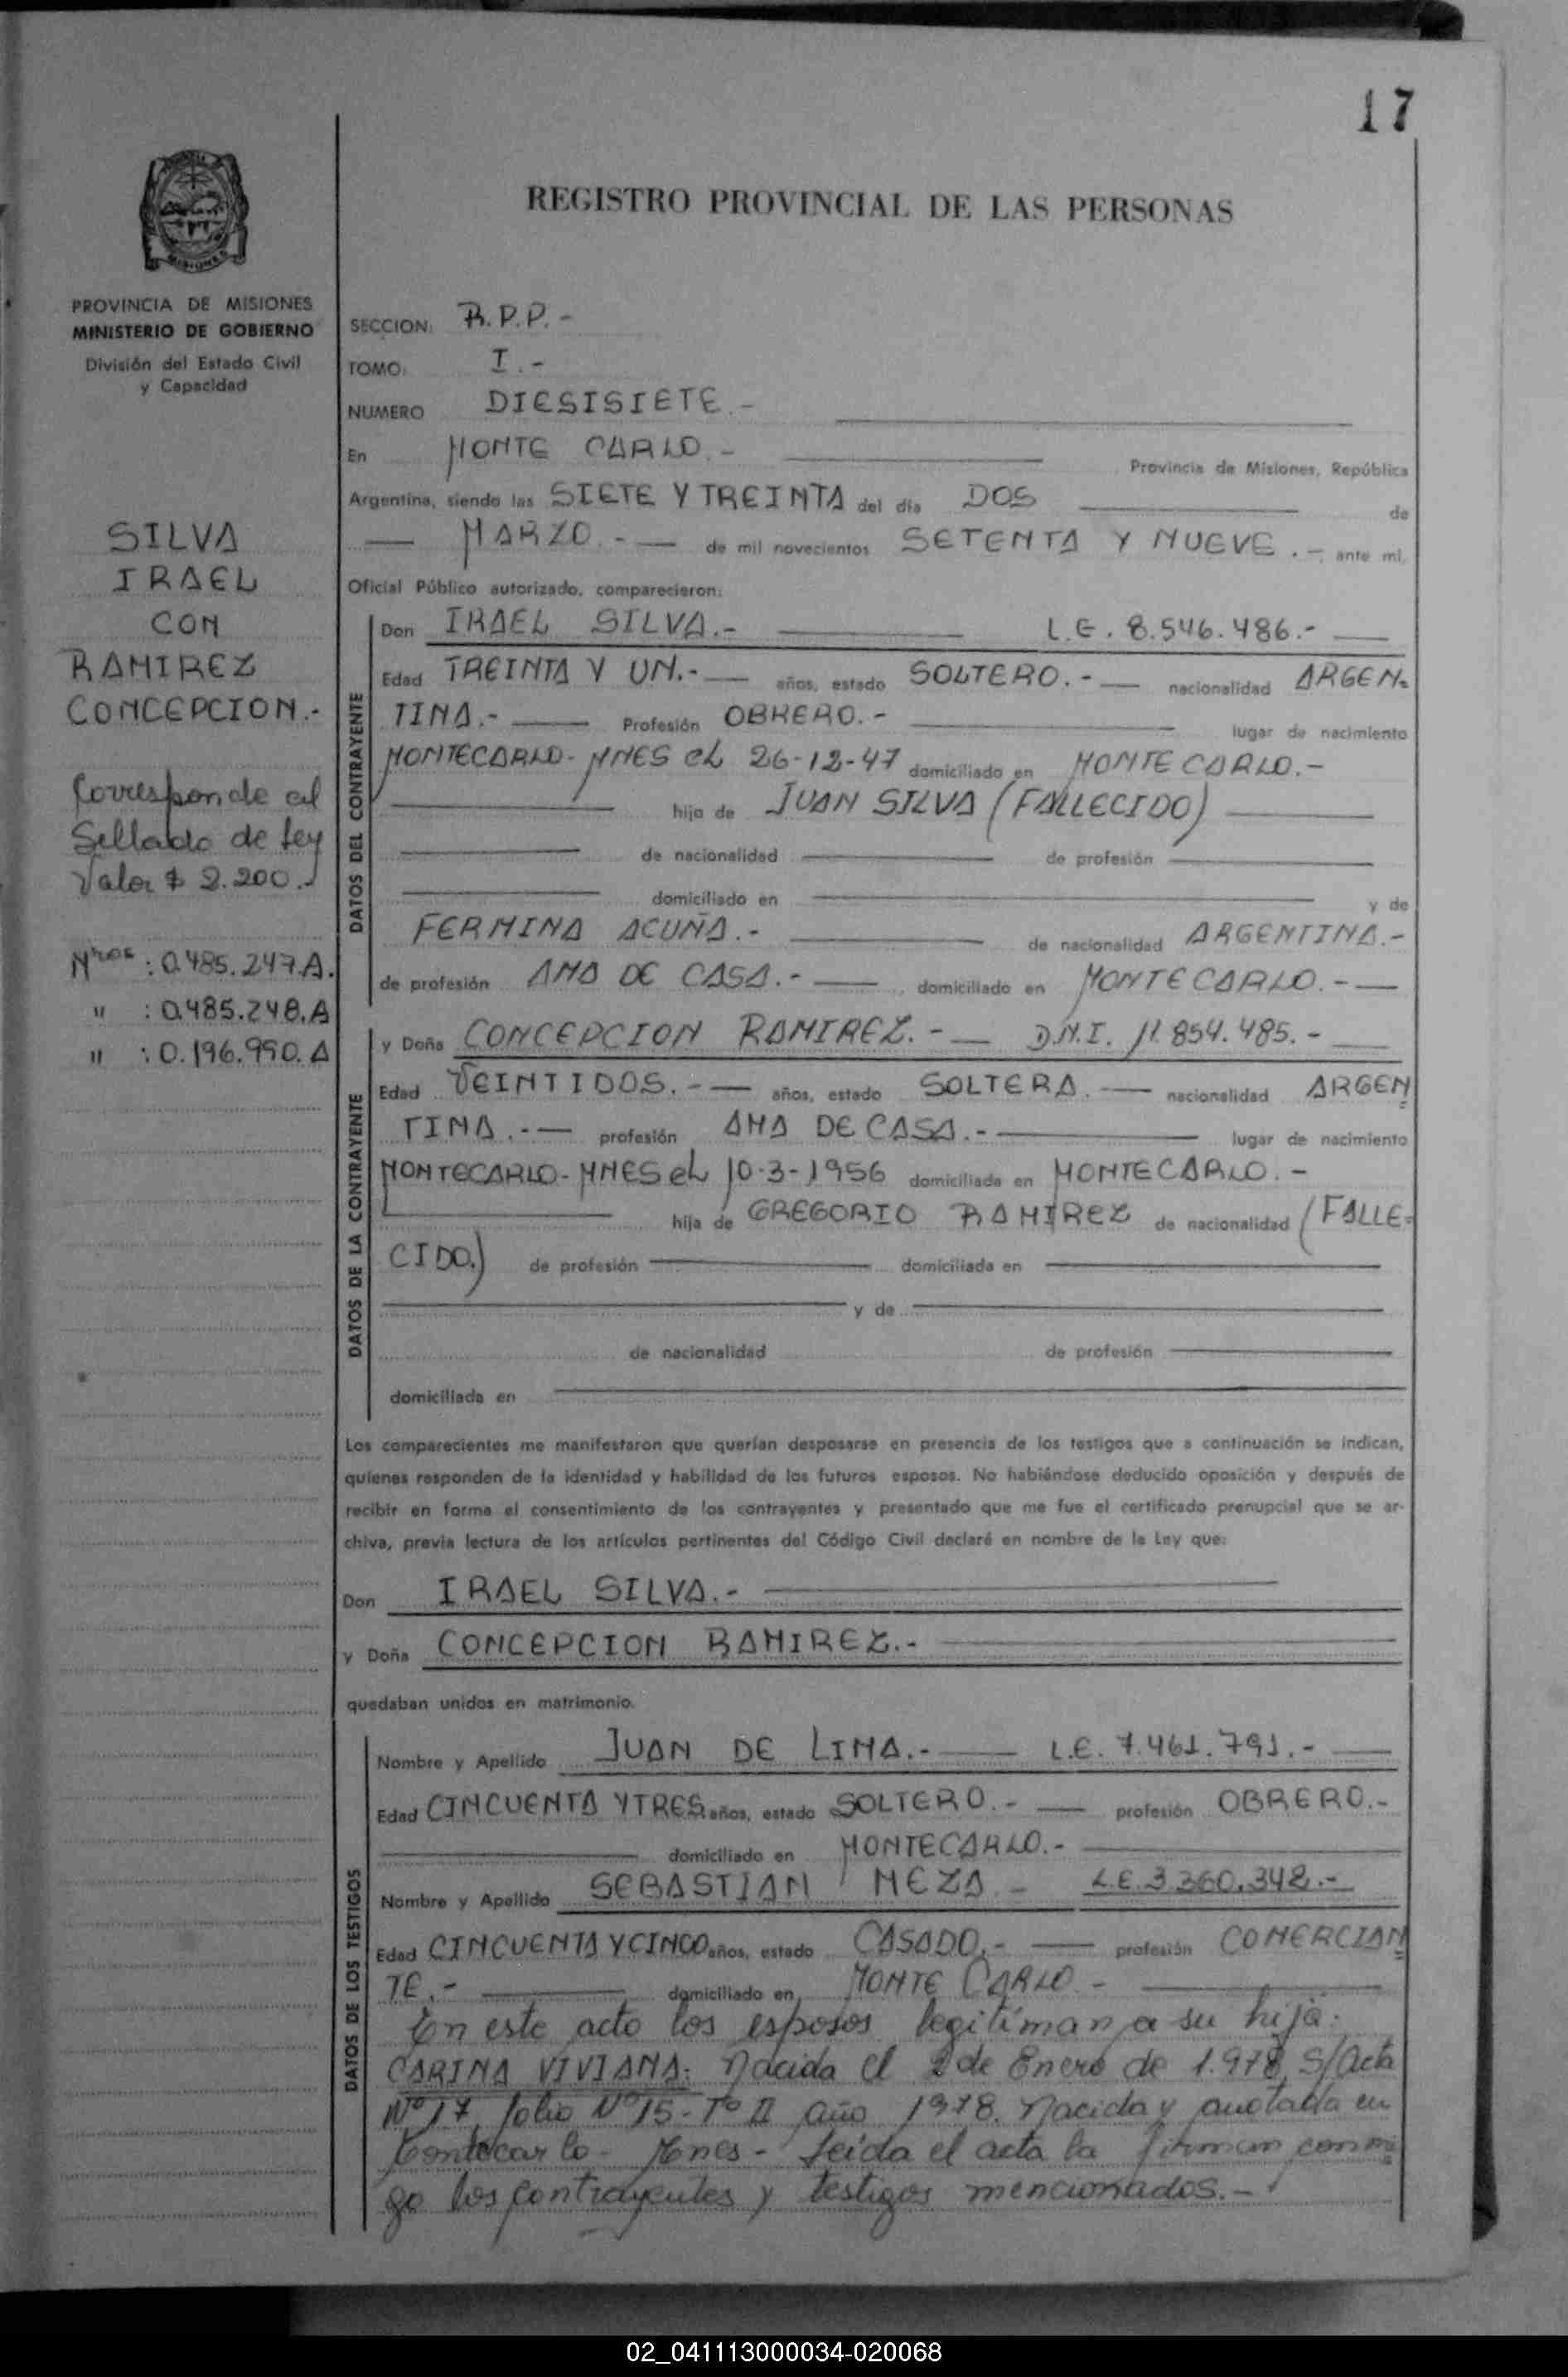 17
REGISTRO PROVINCIAL DE LAS PERSONAS
MISIONES
PROVINCIA DE MISIONES
MINISTERIO DE GOBIERNO
División del Estado Civil
y Capacidad
SILVA
IRAEL
CON
RAMIREZ
CONCEPCION.-
Corresponde al
Sellado de Ley
Valor $ 2.200.-
Nros : 0.485.247.A.
" : 0.485.248.A
" : 0.196.990.A
SECCION: R.P.P.-
TOMO: I.-
NUMERO DIESISIETE.-
En MONTE CARLO.- Provincia de Misiones, República
Argentina, siendo las SIETE Y TREINTA del día DOS de
MARZO.- de mil novecientos SETENTA Y NUEVE.- ante mí,
Oficial Público autorizado, comparecieron:
DATOS DEL CONTRAYENTE
Don IRAEL SILVA.- L.E. 8.546.486.-
Edad TREINTA Y UN.- años, estado SOLTERO.- nacionalidad ARGEN-
TINA.- Profesión OBRERO.- lugar de nacimiento
MONTECARLO-MNES el 26-12-47 domiciliado en MONTECARLO.-
hijo de JUAN SILVA (FALLECIDO)
de nacionalidad de profesión
domiciliado en y de
FERMINA ACUÑA.- de nacionalidad ARGENTINA.-
de profesión AMA DE CASA.- domiciliado en MONTECARLO.-
DATOS DE LA CONTRAYENTE
y Doña CONCEPCION RAMIREZ.- D.N.I. 11.854.485.-
Edad VEINTIDOS.- años, estado SOLTERA.- nacionalidad ARGEN
TINA.- profesión AMA DE CASA.- lugar de nacimiento
MONTECARLO-MNES el 10-3-1956 domiciliada en MONTECARLO.-
hija de GREGORIO RAMIREZ de nacionalidad (FALLE-
CIDO.) de profesión domiciliada en
y de
de nacionalidad de profesión
domiciliada en
Los comparecientes me manifestaron que querían desposarse en presencia de los testigos que a continuación se indican,
quienes responden de la identidad y habilidad de los futuros esposos. No habiéndose deducido oposición y después de
recibir en forma el consentimiento de los contrayentes y presentado que me fue el certificado prenupcial que se ar-
chiva, previa lectura de los artículos pertinentes del Código Civil declaré en nombre de la Ley que:
Don IRAEL SILVA.-
y Doña CONCEPCION RAMIREZ.-
quedaban unidos en matrimonio.
DATOS DE LOS TESTIGOS
Nombre y Apellido JUAN DE LIMA.- L.E. 7.461.791.-
Edad CINCUENTA Y TRES años, estado SOLTERO.- profesión OBRERO.-
domiciliado en MONTECARLO.-
Nombre y Apellido SEBASTIAN MEZA.- L.E. 3.360.342.-
Edad CINCUENTA Y CINCO años, estado CASADO.- profesión COMERCIAN
TE.- domiciliado en MONTE CARLO.-
En este acto los esposos legitiman a su hija:
CARINA VIVIANA: Nacida el 2 de Enero de 1.978, S/Acta
Nº 17, folio Nº 15-Tº II año 1978. Nacida y anotada en
Montecarlo-Mnes- Leida el acta la firman conmi
go los contrayentes y testigos mencionados.-
02_041113000034-020068